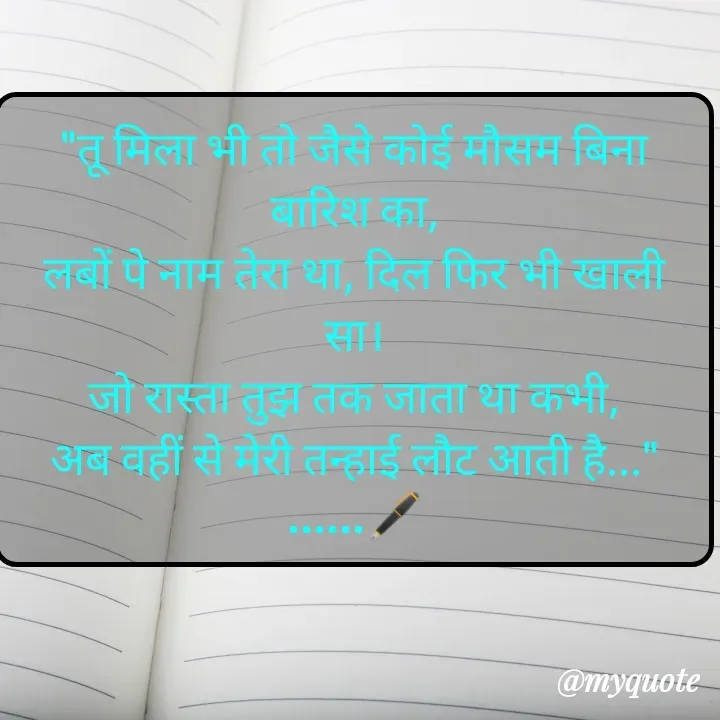 "तू मिला भी तो जैसे कोई मौसम बिना
बारिश का,
लबों पे नाम तेरा था, दिल फिर भी खाली
सा।
जो रास्ता तुझ तक जाता था कभी,
अब वहीं से मेरी तन्हाई लौट आती है..."
......🖋️
@myquote